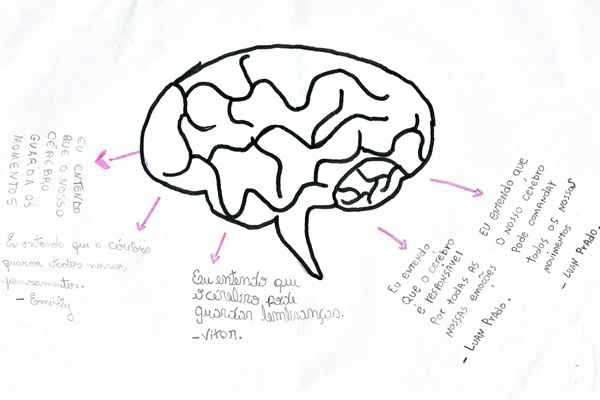 EU ENTENDO
QUE O NOSSO
CÉREBRO
GUARDA OS
MOMENTOS
Eu entendo que o cérebro
guarda todos nossos
pensamentos.
- Emilly
Eu entendo que
o cérebro pode
guardar lembranças.
- Vitor.
EU ENTENDO
QUE O CÉREBRO
É RESPONSÁVEL
POR TODAS AS
NOSSAS EMOÇÕES
- LUAN PRADO.
EU ENTENDO QUE
O NOSSO CÉREBRO
PODE COMANDAR
TODOS OS NOSSOS
MOVIMENTOS
- LUAN PRADO.